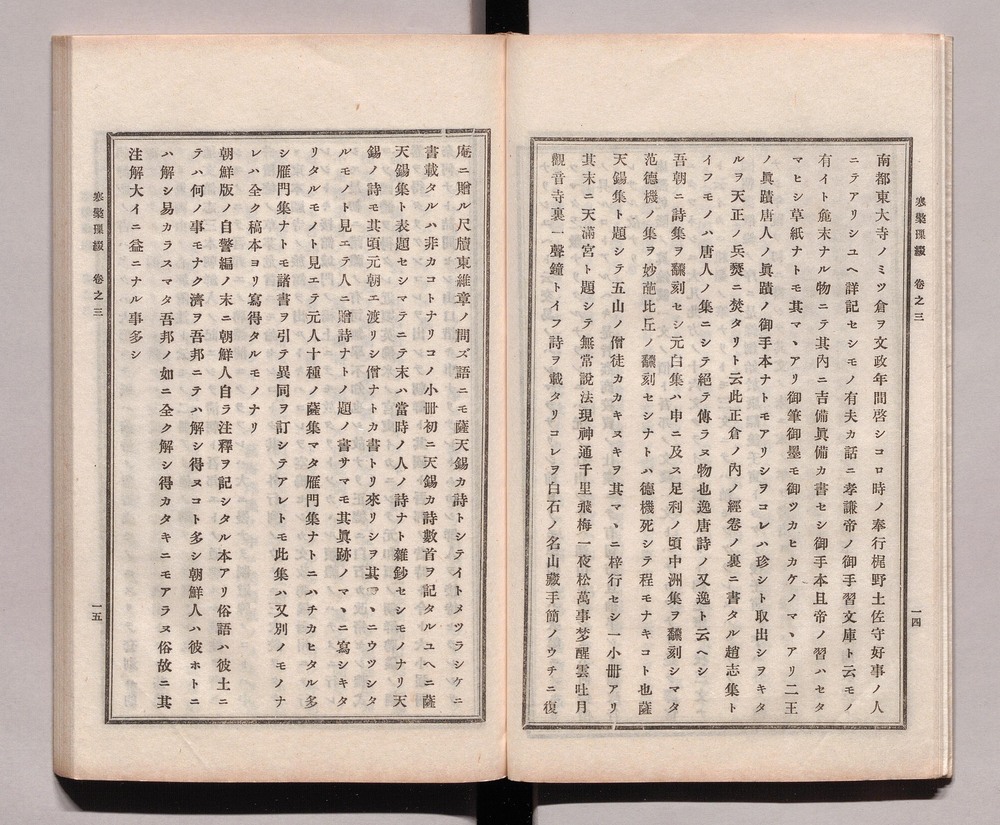 寒檠璅綴 卷之三
一四
南都東大寺ノミツ倉ヲ文政年間啓シコロ時ノ奉行梶野土佐守好事ノ人
ニテアリシユヘ詳記セシモノ有夫カ話ニ孝謙帝ノ御手習文庫ト云モノ
有イト麁末ナル物ニテ其內ニ吉備眞備カ書セシ御手本且帝ノ習ハセタ
マヒシ草紙ナトモ其マヽアリ御筆御墨モ御ツカヒカケノマヽアリ二王
ノ眞蹟唐人ノ眞蹟ノ御手本ナトモアリシヲコレハ珍シト取出シヲキタ
ルヲ天正ノ兵燹ニ焚タリト云此正倉ノ內ノ經卷ノ裏ニ書タル趙志集ト
イフモノハ唐人ノ集ニシテ絕テ傳ラヌ物也逸唐詩ノ又逸ト云ヘシ
吾朝ニ詩集ヲ飜刻セシ元白集ハ申ニ及ス足利ノ頃中洲集ヲ飜刻シマタ
范德機ノ集ヲ妙葩比丘ノ飜刻セシナトハ德機死シテ程モナキコト也薩
天錫集ト題シテ五山ノ僧徒カカキヌキヲ其マヽニ梓行セシ一小冊アリ
其末ニ天滿宮ト題シテ無常說法現神通千里飛梅一夜松萬事梦醒雲吐月
觀音寺裏一聲鐘トイフ詩ヲ載タリコレヲ白石ノ名山藏手簡ノウチニ復
庵ニ贈ル尺牘東維章ノ問ズ語ニモ薩天錫カ詩トシテイトメツラシケニ
書載タルハ非カコトナリコノ小冊初ニ天錫カ詩數首ヲ記タルユヘニ薩
天錫集ト表題セシマテニテ末ハ當時ノ人ノ詩ナト雜鈔セシモノナリ天
錫ノ詩モ其頃元朝エ渡リシ僧ナトカ書トリ來リシヲ其マヽニウツシタ
ルモノト見エテ人ニ贈詩ナトノ題ノ書サマモ其眞跡ノマヽニ寫シキタ
リタルモノト見エテ元人十種ノ薩集マタ雁門集ナトニハチカヒタル多
シ雁門集ナトモ諸書ヲ引テ異同ヲ訂シテアレトモ此集ハ又別ノモノナ
レハ全ク稿本ヨリ寫得タルモノナリ
朝鮮版ノ自警編ノ末ニ朝鮮人自ラ注釋ヲ記シタル本アリ俗語ハ彼土ニ
テハ何ノ事モナク濟ヲ吾邦ニテハ解シ得ヌコト多シ朝鮮人ハ彼ホトニ
ハ解シ易カラスマタ吾邦ノ如ニ全ク解シ得カタキニモアラヌ俗故ニ其
注解大イニ益ニナル事多シ
寒檠璅綴 卷之三
一五